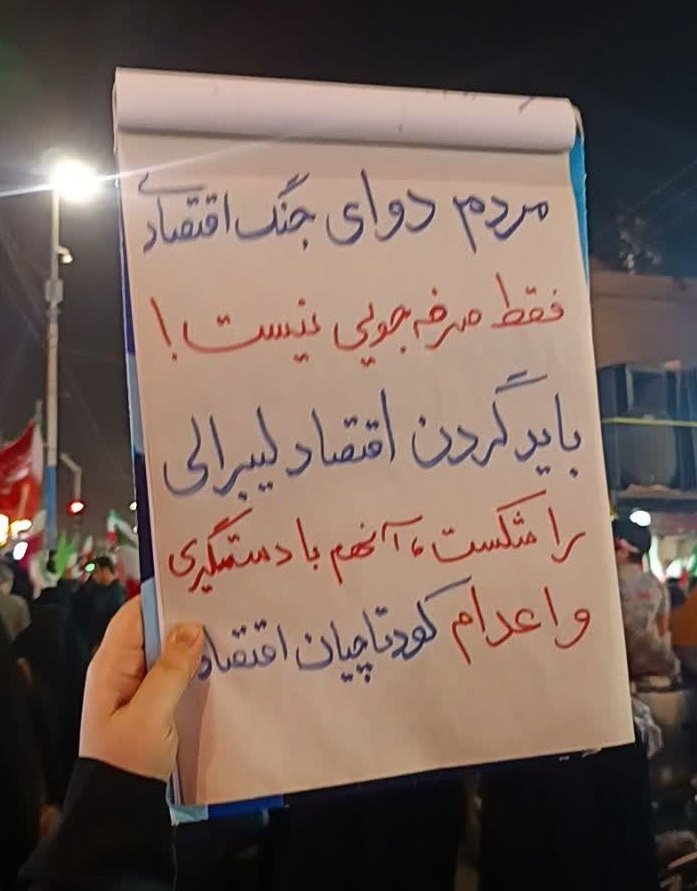 مردم دوای جنگ اقتصادی
فقط صرفه جویی نیست!
باید گردن اقتصاد لیبرالی
را شکست، آنهم با دستگیری
و اعدام کودتاچیان اقتصاد